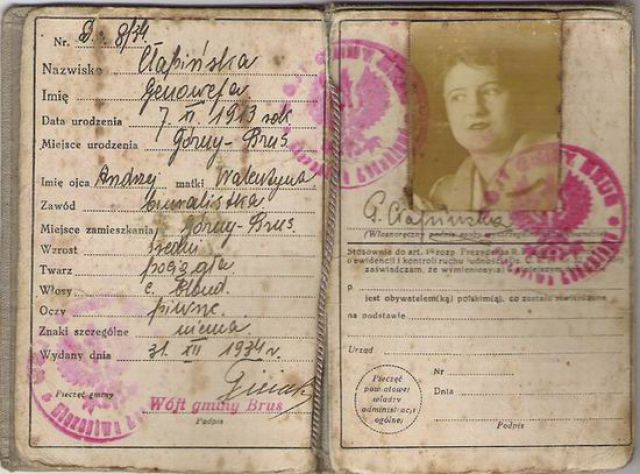 Nr. D. 8/34.
Nazwisko Cłapińska
Imię Genowefa
Data urodzenia 7. II. 1913 rok.
Miejsce urodzenia Górny-Brus
Imię ojca Andrzej matki Walentyna
Zawód
Miejsce zamieszkania Górny-Brus.
Wzrost średni
Twarz pociągła
Włosy c. blond.
Oczy piwne
Znaki szczególne niema
Wydany dnia 31. XII 1934 r.
Pieczęć gminy
Wójt gminy Brus
Podpis
G. Cłapińska
(Własnoręczny podpis
Stosownie do art. 1 rozp. Prezydenta R.
o ewidencji i kontroli ruchu ludności
zaświadczam, że wymieniony(a)
p
jest obywatelem(ką) polskim(ą), co zostało stwierdzone
na podstawie
Urząd
Pieczęć
powiatowej
władzy
administracji
ogólnej
Nr
Dnia
Podpis